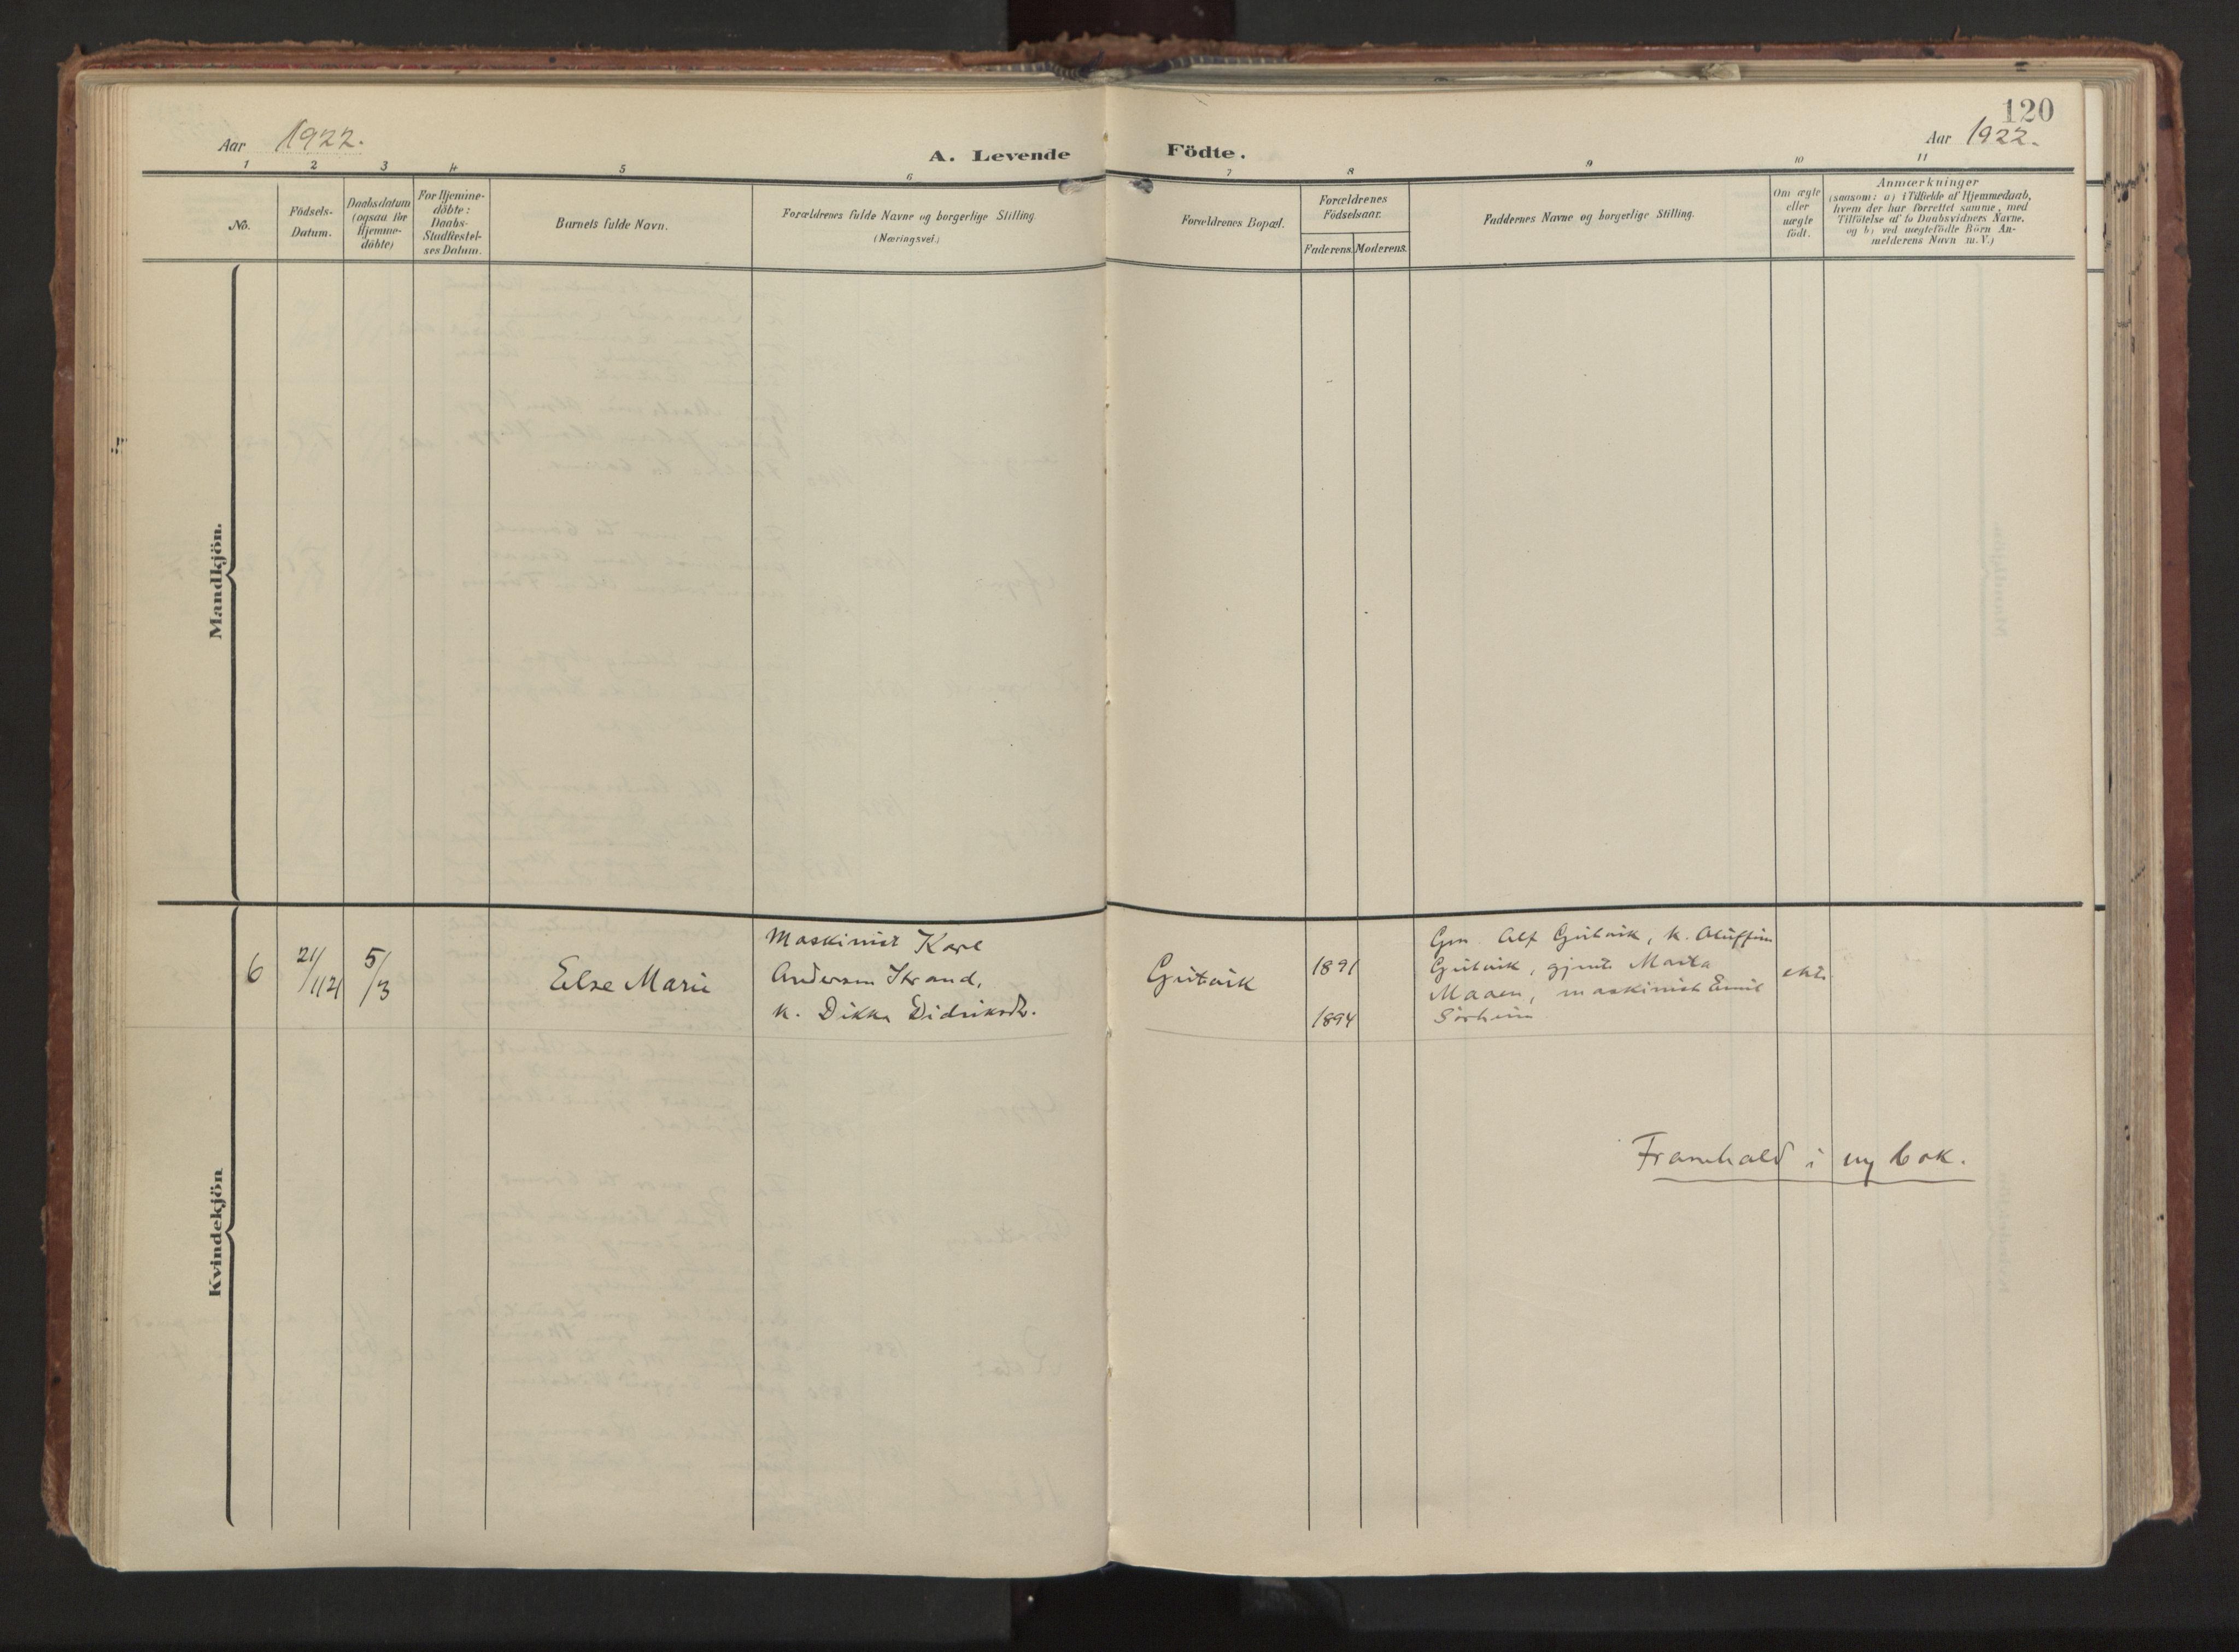 120
Aar 1922.
A. Levende Födte.
Aar 1922.
1 2 3 4 5 6 7 8 9 10 11
No.
Födsels-
Datum.
Daabsdatum
(ogsaa for
Hjemme-
döbte)
For Hjemme-
döbte:
Daabs-
Stadfestel-
ses Datum.
Barnets fulde Navn.
Forældrenes fulde Navne og borgerlige Stilling.
(Næringsvei.)
Forældrenes Bopæl.
Forældrenes
Födselsaar.
Faderens. Moderens.
Faddernes Navne og borgerlige Stilling.
Om ægte
eller
uægte
födt.
Anmærkninger
(saasom: a) i Tilfælde af Hjemmedaab,
hvem der har forrettet samme, med
Tilföielse af to Daabsvidners Navne,
og b) ved uægtefödte Börn An-
melderens Navn m. V.)
Mandkjön.
Kvindekjön
6
21/1121
5/3
Else Marie
Maskinist Karl
Anderson Strand,
k. Dikka Didriksdt.
Gutvik
1891
1894
Gm. Alf Gutvik, k. Oluffine
Gutvik, gjente Marta
Maaen, maskinist Emil
Sörheim
ekte
Framhald i ny bok.